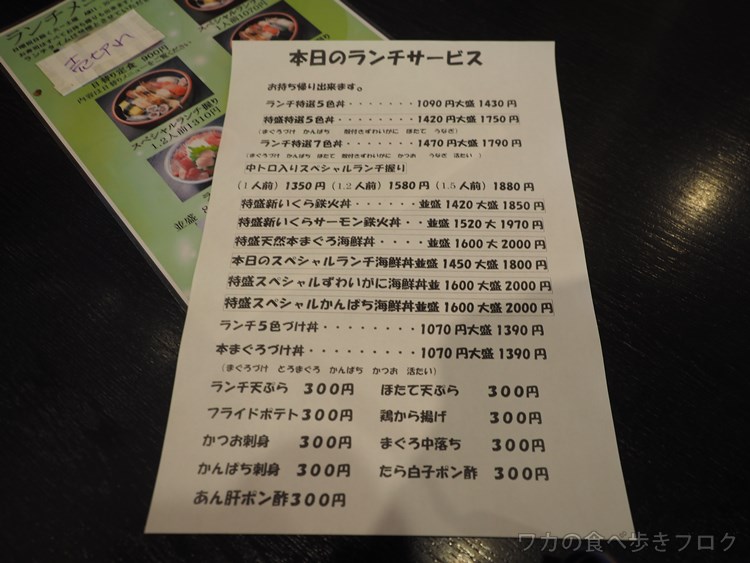 ランチメ
売切れ
日替り定食 900円
スペシャルランチ握り
1.2人前1310円
1人前1070円
並盛
本日のランチサービス
お持ち帰り出来ます。
ランチ特選5色丼・・・・・・・1090円大盛 1430円
特盛特選5色丼・・・・・・・・1420円大盛 1750円
(まぐろづけ かんぱち 殻付きずわいがに ほたて うなぎ)
ランチ特選7色丼・・・・・・・1470円大盛 1790円
(まぐろづけ かんぱち ほたて 殻付きずわいがに かつお うなぎ 活たい)
中トロ入りスペシャルランチ握り
(1人前) 1350円 (1.2人前) 1580円 (1.5人前) 1880円
特盛新いくら鉄火丼・・・・・並盛 1420 大盛 1850円
特盛新いくらサーモン鉄火丼・・並盛 1520 大 1970円
特盛天然本まぐろ海鮮丼・・・・並盛 1600 大 2000円
本日のスペシャルランチ海鮮丼並盛 1450 大盛 1800円
特盛スペシャルずわいがに海鮮丼並 1600 大盛 2000円
特盛スペシャルかんぱち海鮮丼並盛 1600 大盛 2000円
ランチ5色づけ丼・・・・・・・・・1070円大盛 1390円
本まぐろづけ丼・・・・・・・・・・1070円大盛 1390円
(まぐろづけ とろまぐろ かんぱち かつお 活たい)
ランチ天ぷら 300円 ほたて天ぷら 300円
フライドポテト300円 鶏から揚げ 300円
かつお刺身 300円 まぐろ中落ち 300円
かんぱち刺身 300円 たら白子ポン酢 300円
あん肝ポン酢300円
ワカの食べ歩きブログ